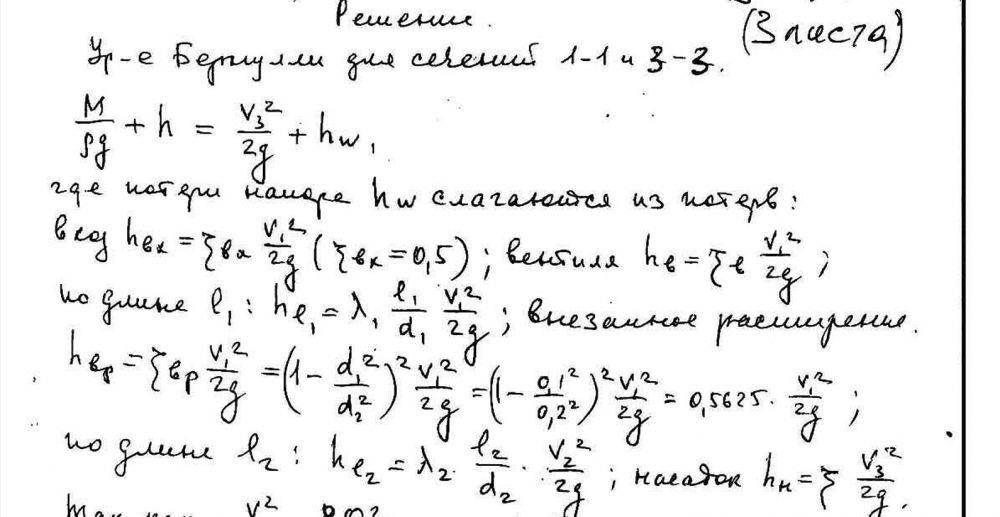 Решение.
(3 листа)
Ур-е Бернулли для сечений 1-1 и 3-3.
M/ρg + h = V₃²/2g + hw,
где потери напора hw слагаются из потерь:
вход hвх = ξвх V₁²/2g (ξвх = 0,5); вентиля hв = ξв V₁²/2g;
по длине l₁: hl₁ = λ₁ l₁/d₁ V₁²/2g; внезапное расширение.
hвр = ξвр V₁²/2g = (1 - d₁²/d₂²)² V₁²/2g = (1 - 0,1²/0,2²)² V₁²/2g = 0,5625 · V₁²/2g;
по длине l₂: hl₂ = λ₂ · l₂/d₂ · V₂²/2g; насадок hн = ξ V₃²/2g.